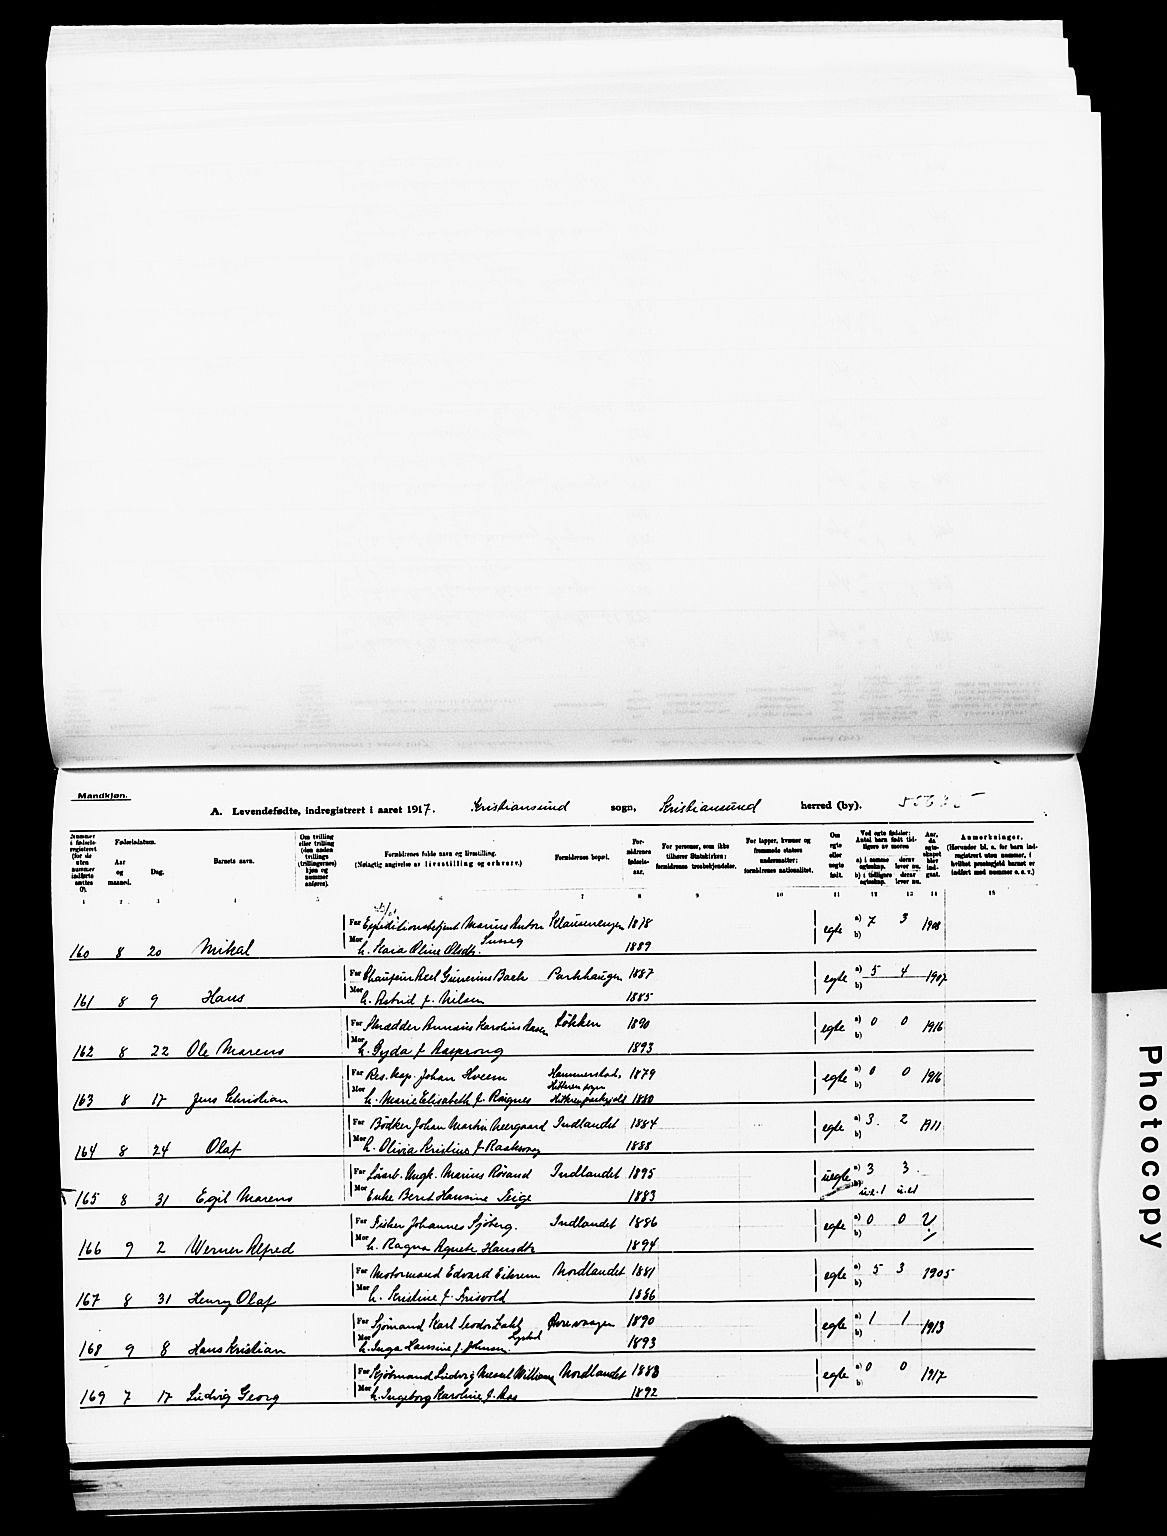 Mandkjøn.
A. Levendefødte, indregistrert i aaret 1917. Kristiansund sogn, Kristiansund herred (by).
Nummer i fødselsregistret (for de uten nummer indførte sættes 0).
Fødselsdatum.
Aar og maaned.
Dag.
Barnets navn.
Om tvilling eller trilling (den anden tvillings (trillingernes) kjøn og nummer anføres).
Forældrenes fulde navn og livsstilling.
(Nøiagtig angivelse av livsstilling og erhverv.)
Forældrenes bopæl.
Forældrenes fødselsaar.
For personer, som ikke tilhører Statskirken: forældrenes trosbekjendelse.
For lapper, kvæner og fremmede staters undersaatter: forældrenes nationalitet.
Om egte eller uegte født.
Ved egte fødsler: Antal barn født tidligere av moren
a) i samme egteskap. derav lever nu.
b) i tidligere egteskap. derav lever nu.
Aar, da egteskapet blev indgaat.
Anmerkninger.
1 2 3 4 5 6 7 8 9 10 11 12 13 14 15
Far Expeditionsbetjent Marius Anton Klausenengen 1878 egte a) 7 3 1908
160 8 20 Mikal Mor h. Maria Oline Olsdtr. 1889 b)
Far Chauffeur Axel Gunerius Bach Parkhaugen 1887 egte a) 5 4 1907
161 8 9 Hans Mor h. Astrid f. Nilsen 1885 b)
Far Skrædder Karolius Løkken 1890 egte a) 0 0 1916
162 8 22 Ole Marens Mor h. Gyda f. Rasprong 1893 b)
Far Res. kap. Johan Hveem Hammerstad, 1879 egte a) 0 0 1916
163 8 17 Jens Christian Mor h. Marie Elisabeth f. Raknes Hitteren sogn Hitteren prestegjeld 1880 b)
Far Bødker Johan Martin Neergaard Indlandet 1884 egte a) 3 2 1911
164 8 24 Olaf Mor h. Olivia Kristine f. 1888 b)
Far Løsarb. Ungk. Marius Røsand Indlandet 1895 uegte a) 3 3
165 8 31 Egil Marens Mor Enke Berit Hansine Teige 1883 b) u.e. 1 u.e. 1
Far Fisker Johannes Sjøberg. Indlandet 1886 egte a) 0 0
166 9 2 Werner Alfred Mor h. Ragna Agnete Hansdtr 1894 b)
Far Motormand Edvard Eikrem Nordlandet 1881 egte a) 5 3 1905
167 8 31 Henry Olaf Mor h. Kristine f. Frisvold 1886 b)
Far Sjømand Karl Teodor Øvrevaagen 1890 egte a) 1 1 1913
168 9 8 Hans Kristian Mor h. Inga Hansine f. Johnsen 1893 b)
Far Sjømand Ludvig Nordlandet 1888 egte a) 0 0 1917
169 7 17 Ludvig Georg Mor h. Ingeborg Karoline f. Aas 1892 b)
Photocopy